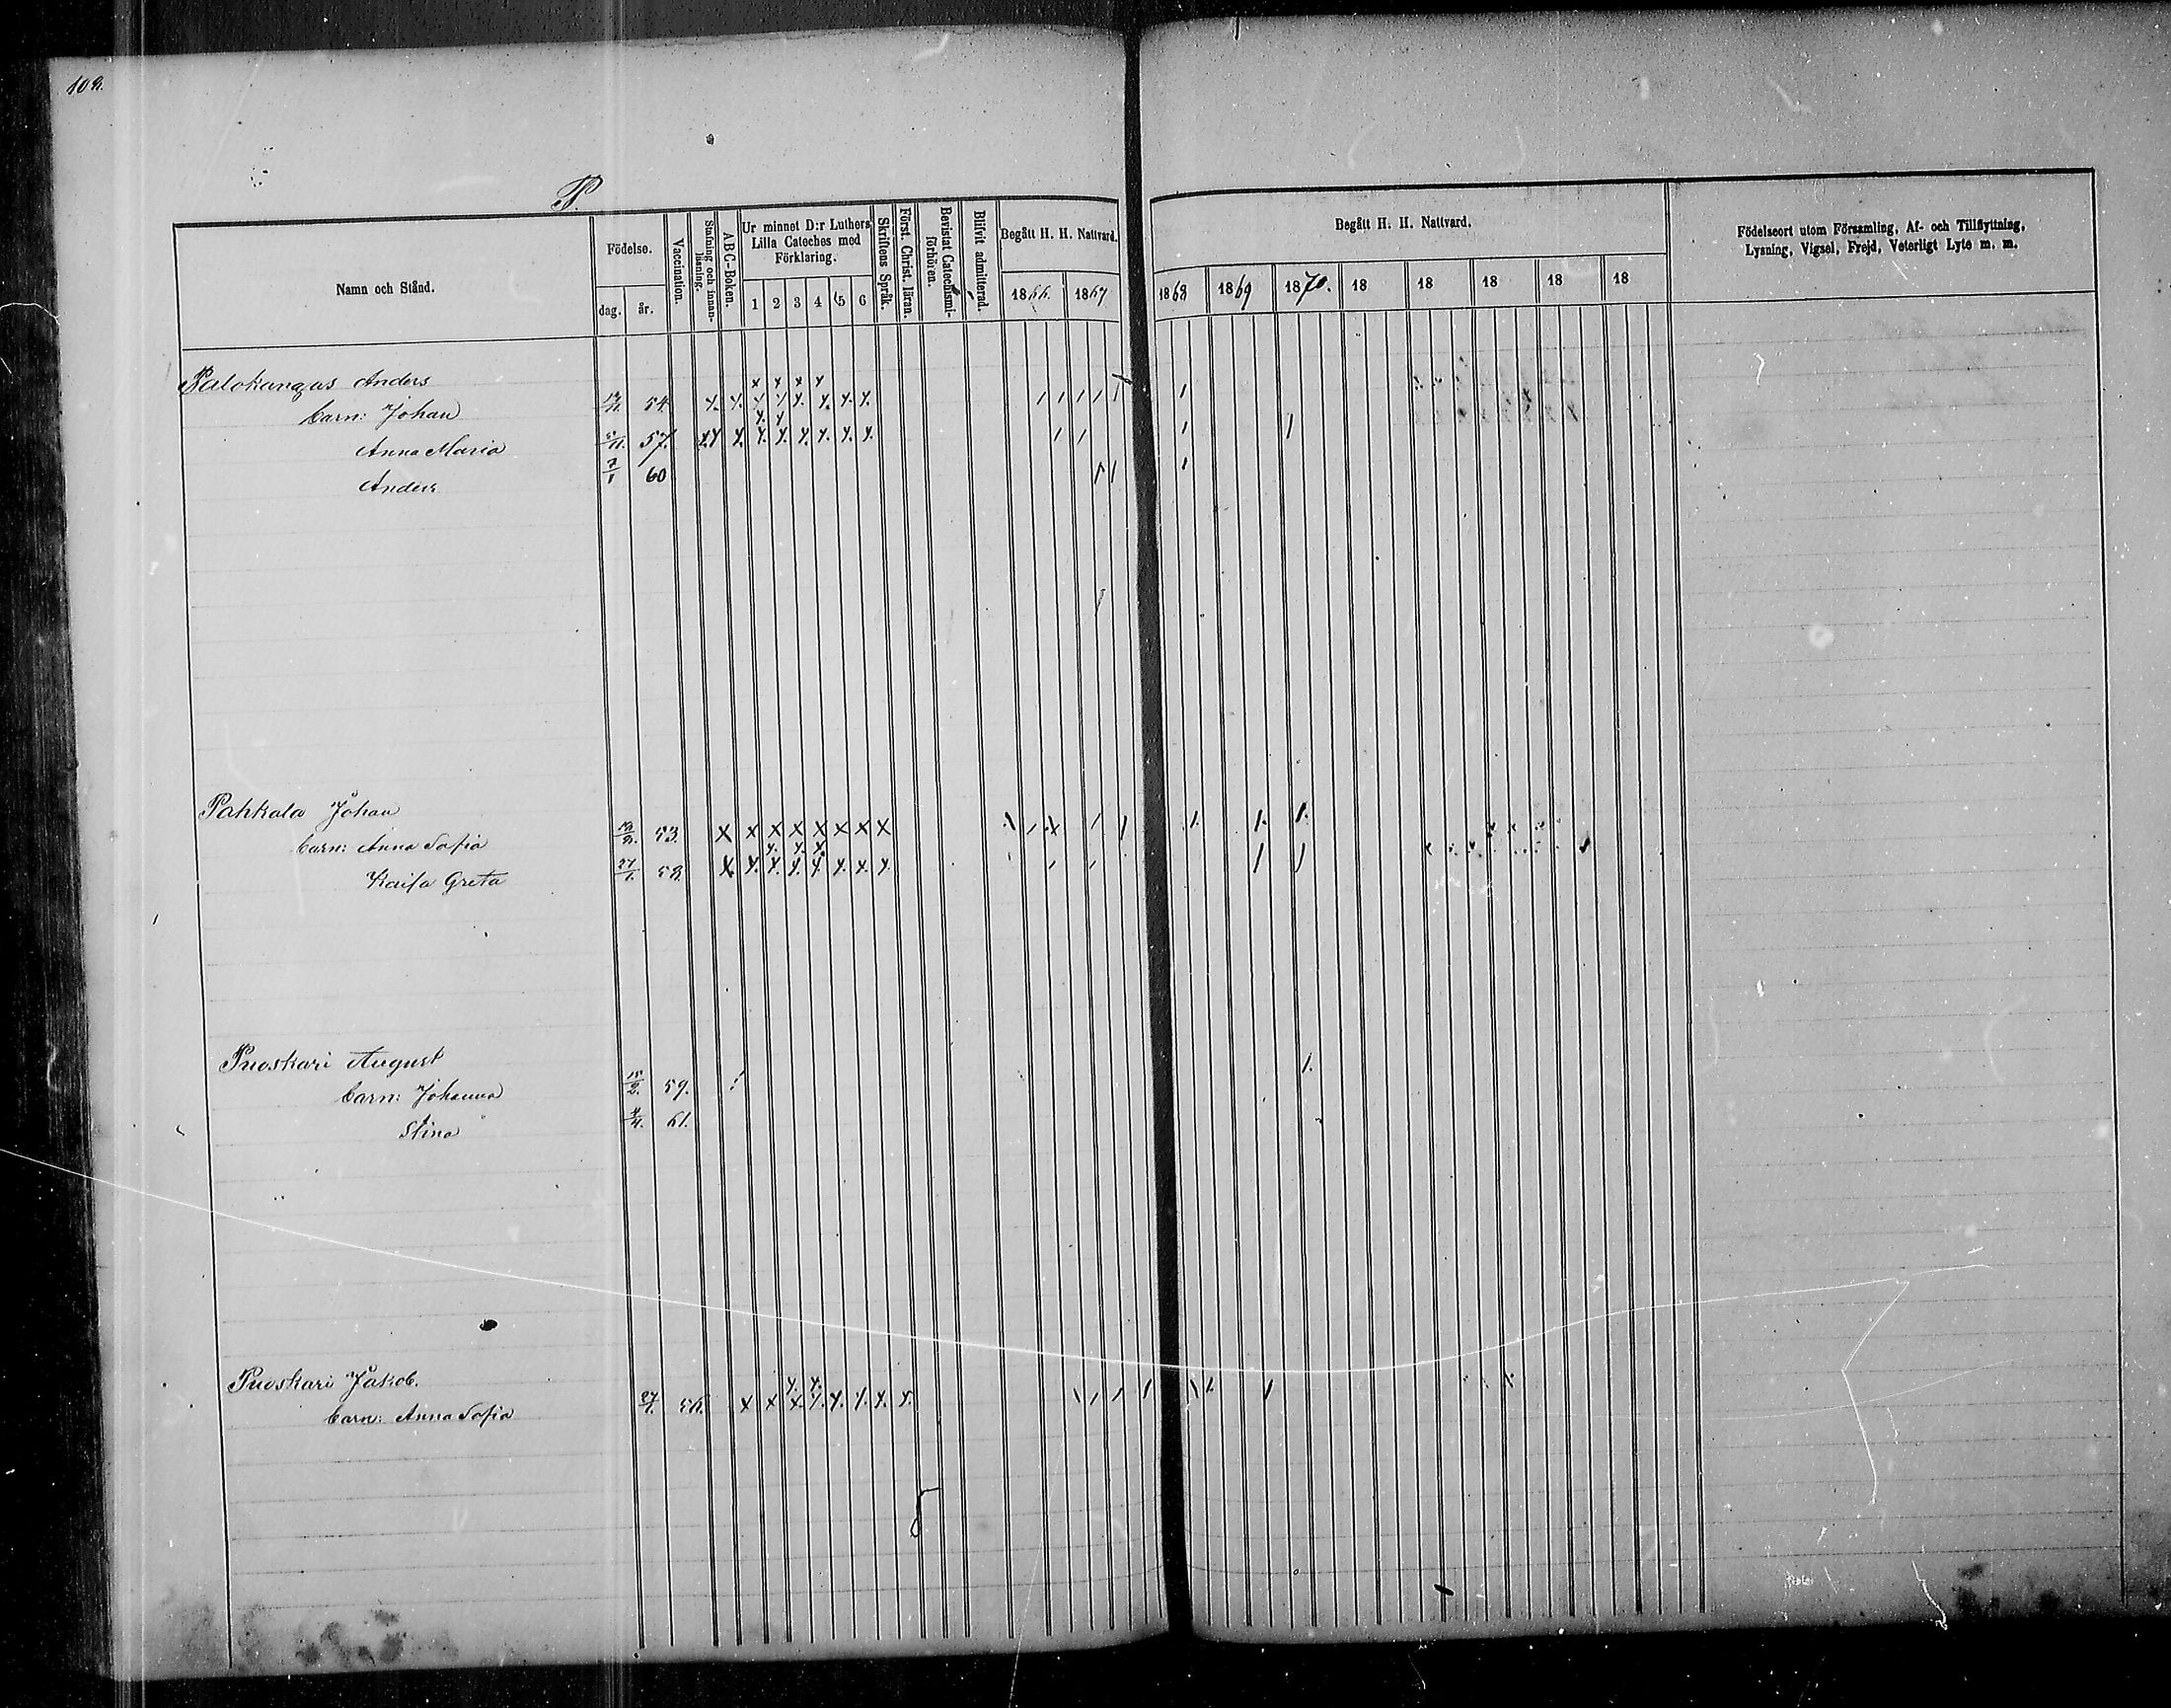 108.
P.
Namn och Stånd.
Födelse.
dag.
år.
Vaccination.
Stafning och innan-läsning.
A B C-Boken.
Ur minnet D:r Luthers Lilla Cateches med Förklaring.
1 2 3 4 5 6
Skriftens Språk.
Först. Christ. läran.
Bevistat Catechismi-förhören.
Blifvit admitterad.
Begått H. H. Nattvard.
1866. 1867
Begått H. H. Nattvard.
1868 1869 1870. 18 18 18 18 18
Födelseort utom Församling, Af- och Tillflyttning,
Lysning, Vigsel, Frejd, Veterligt Lyte m. m.
Palokangas Anders
barn: Johan 54.
Anna Maria 5/11. 57.
Anders 7/1 60
Pahkala Johan
barn: Anna Sofia 53.
Kaisa Greta 27/1. 58.
Puoskari August
barn: Johanna 15/2. 59.
Stina 4/4. 61.
Puoskari Jakob.
barn: Anna Sofia 27/1. 56.